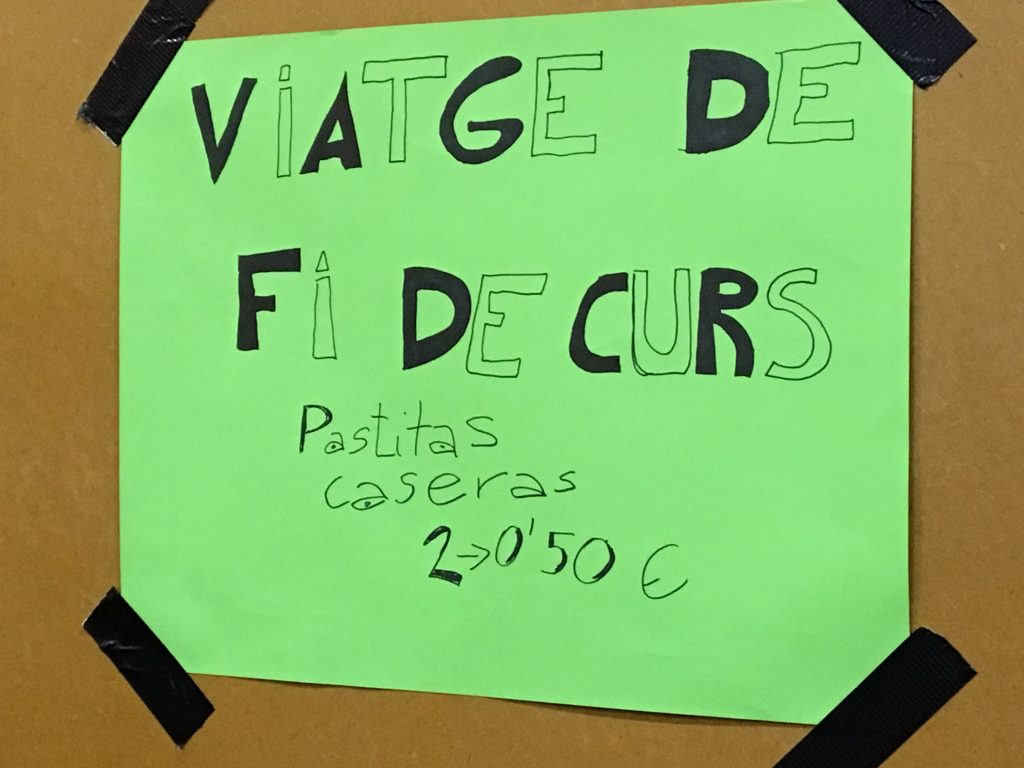 ViATGE DE
Fi DE CURS
Pastitas
caseras
2→0'50 €